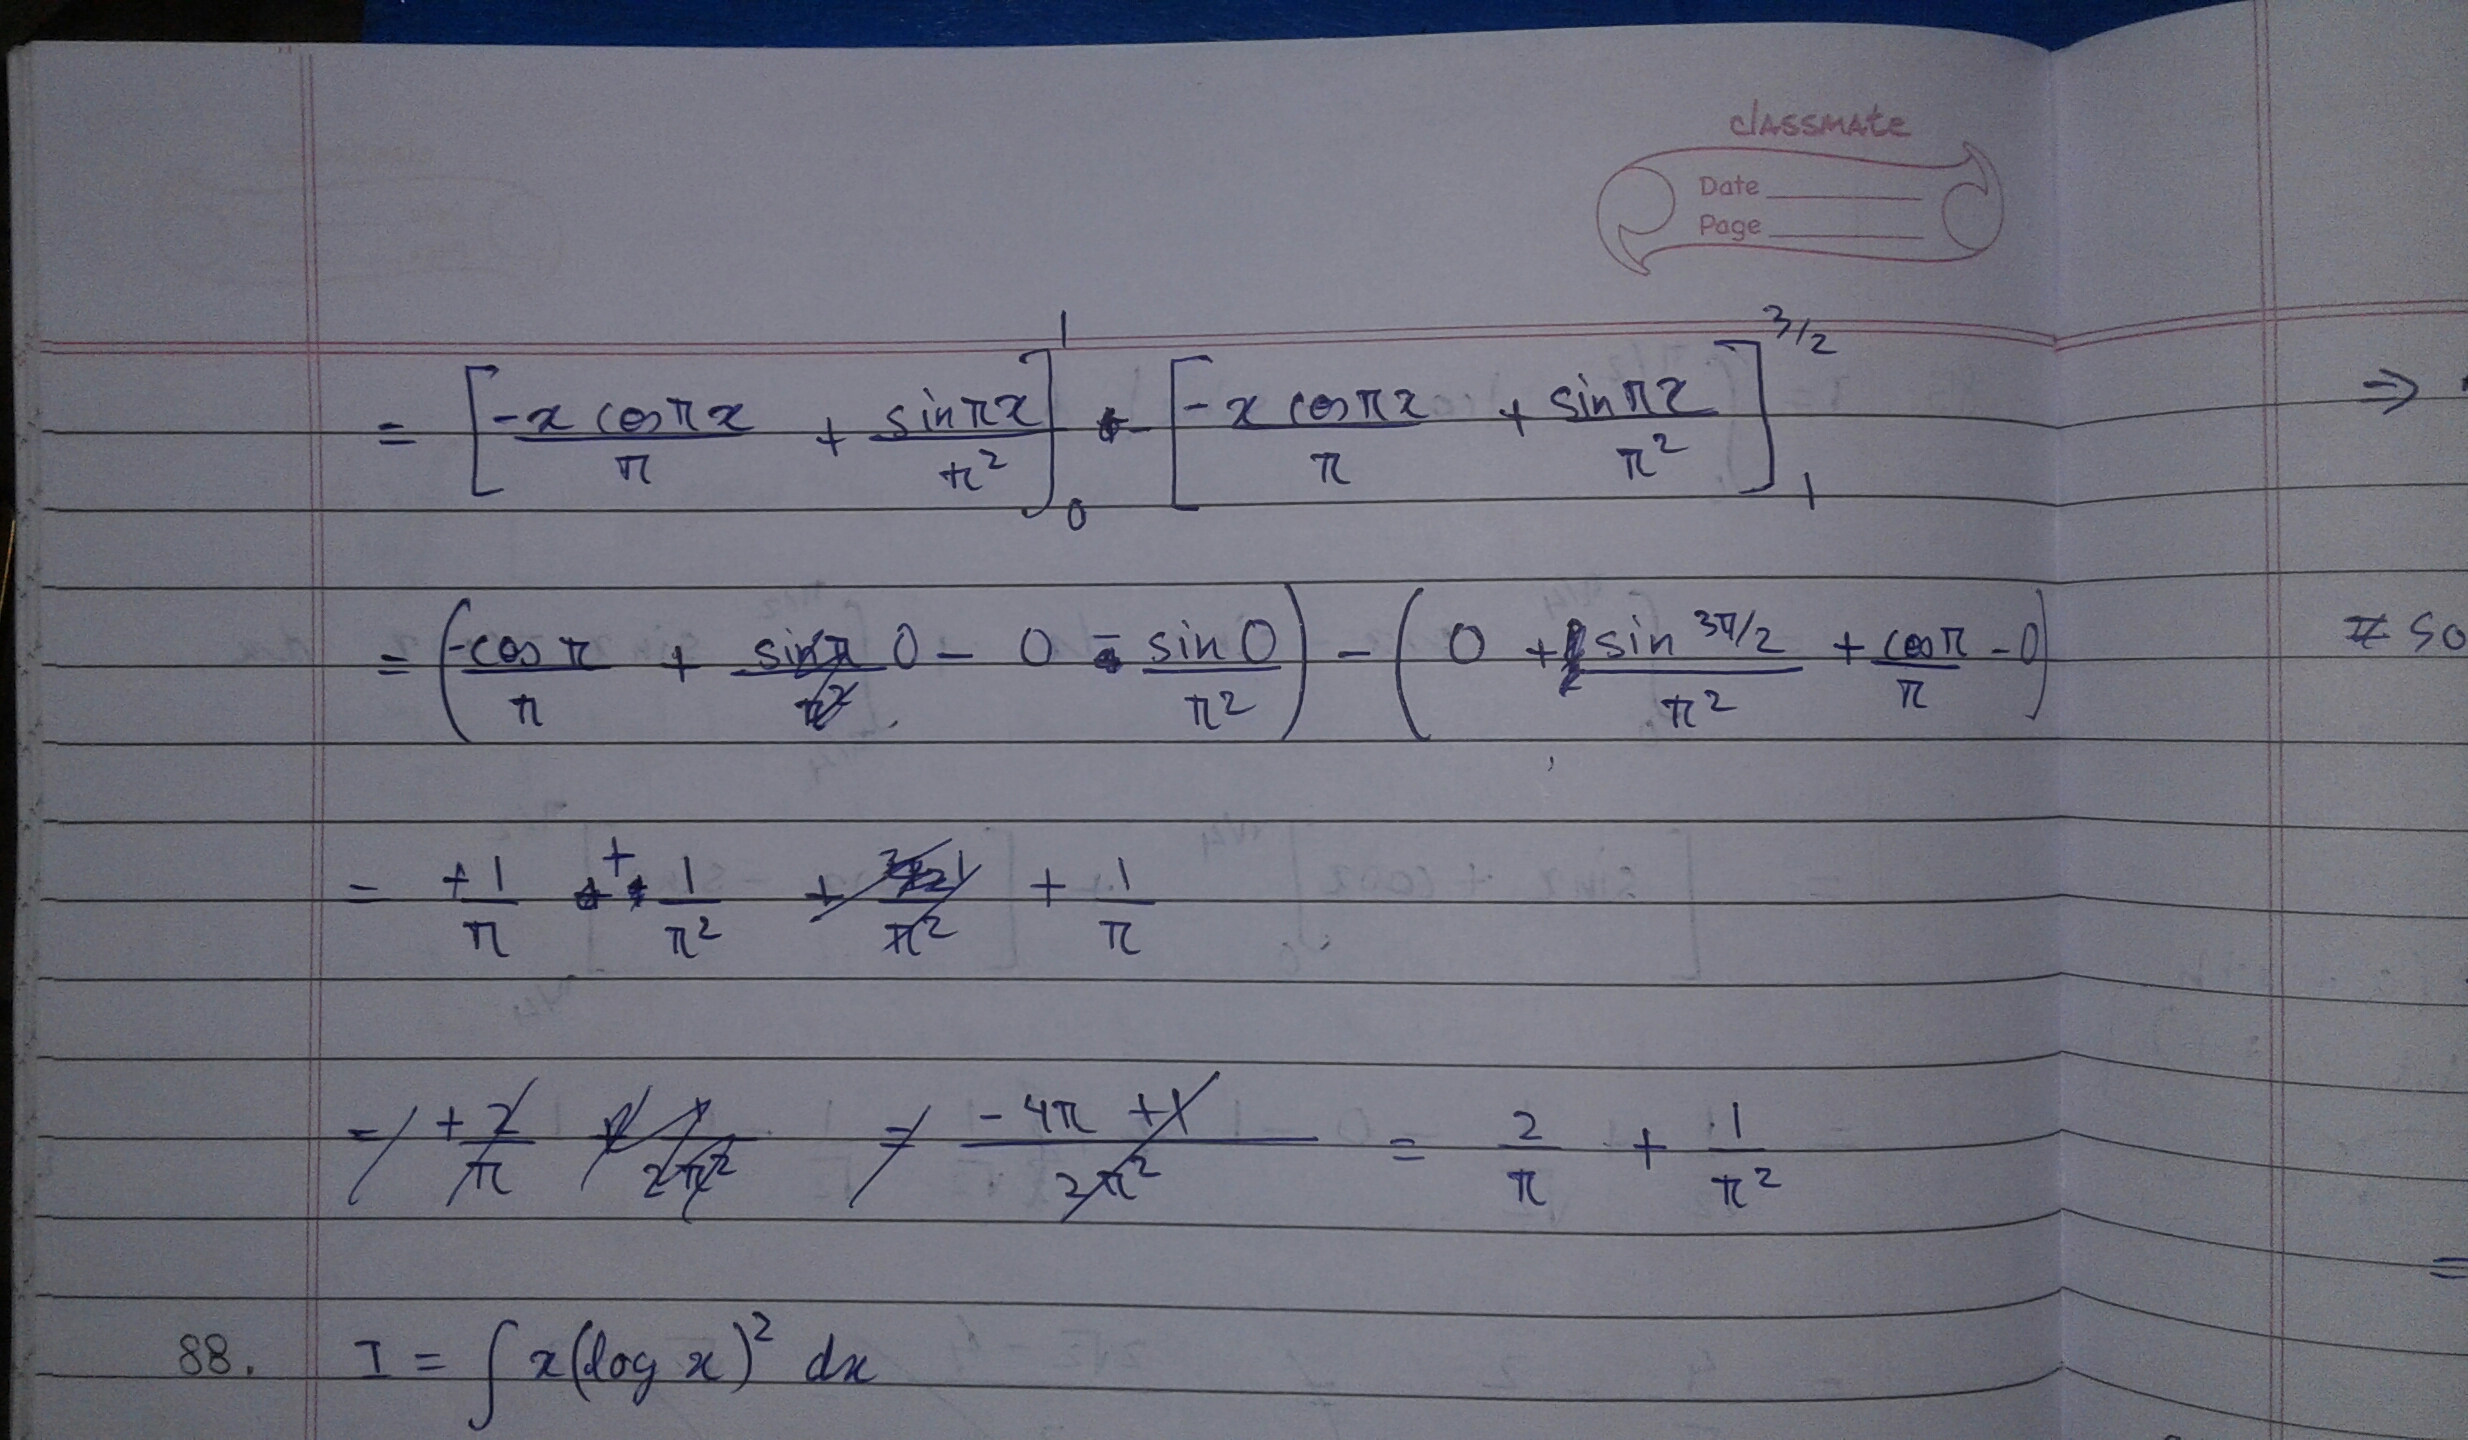 classmate
Date
Page
= [-x cosπx/π + sinπx/π²]₀¹ - [-x cosπx/π + sinπx/π²]₁^3/2
⇒
= (-cosπ/π + 0 - 0 - sin0/π²) - (0 + sin 3π/2/π² + cosπ/π - 0)
so
= +1/π + 1/π² + 1/π
= +2/π = -4π +1/2π² = 2/π + 1/π²
=
88. I = ∫ x(log x)² dx